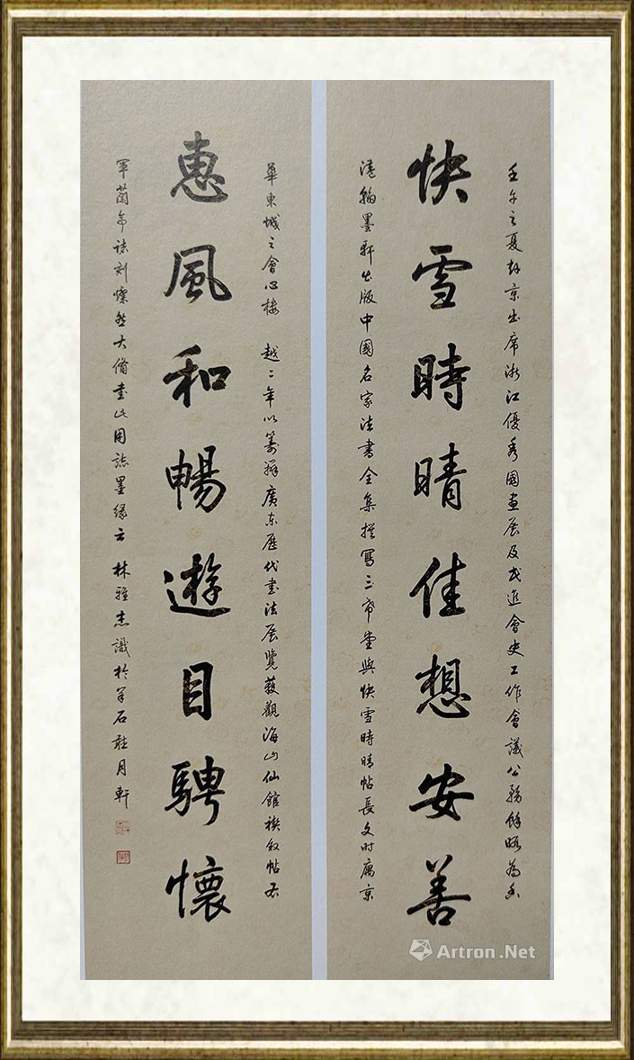 壬午之夏赴京出席浙江優秀國畫展及民進會史工作會議公務餘暇為香
快雪時晴佳想安善
港翰墨軒出版中國名家法書全集撰寫三希堂與快雪時晴帖長文時寓京
華東城之會心樓 越二年以籌辦廣東歷代書法展覽獲觀海山仙館禊敘帖石
惠風和暢遊目騁懷
軍蘭亭
大脩書此用誌墨緣云 林雅杰識於
石 月軒
Artron.Net